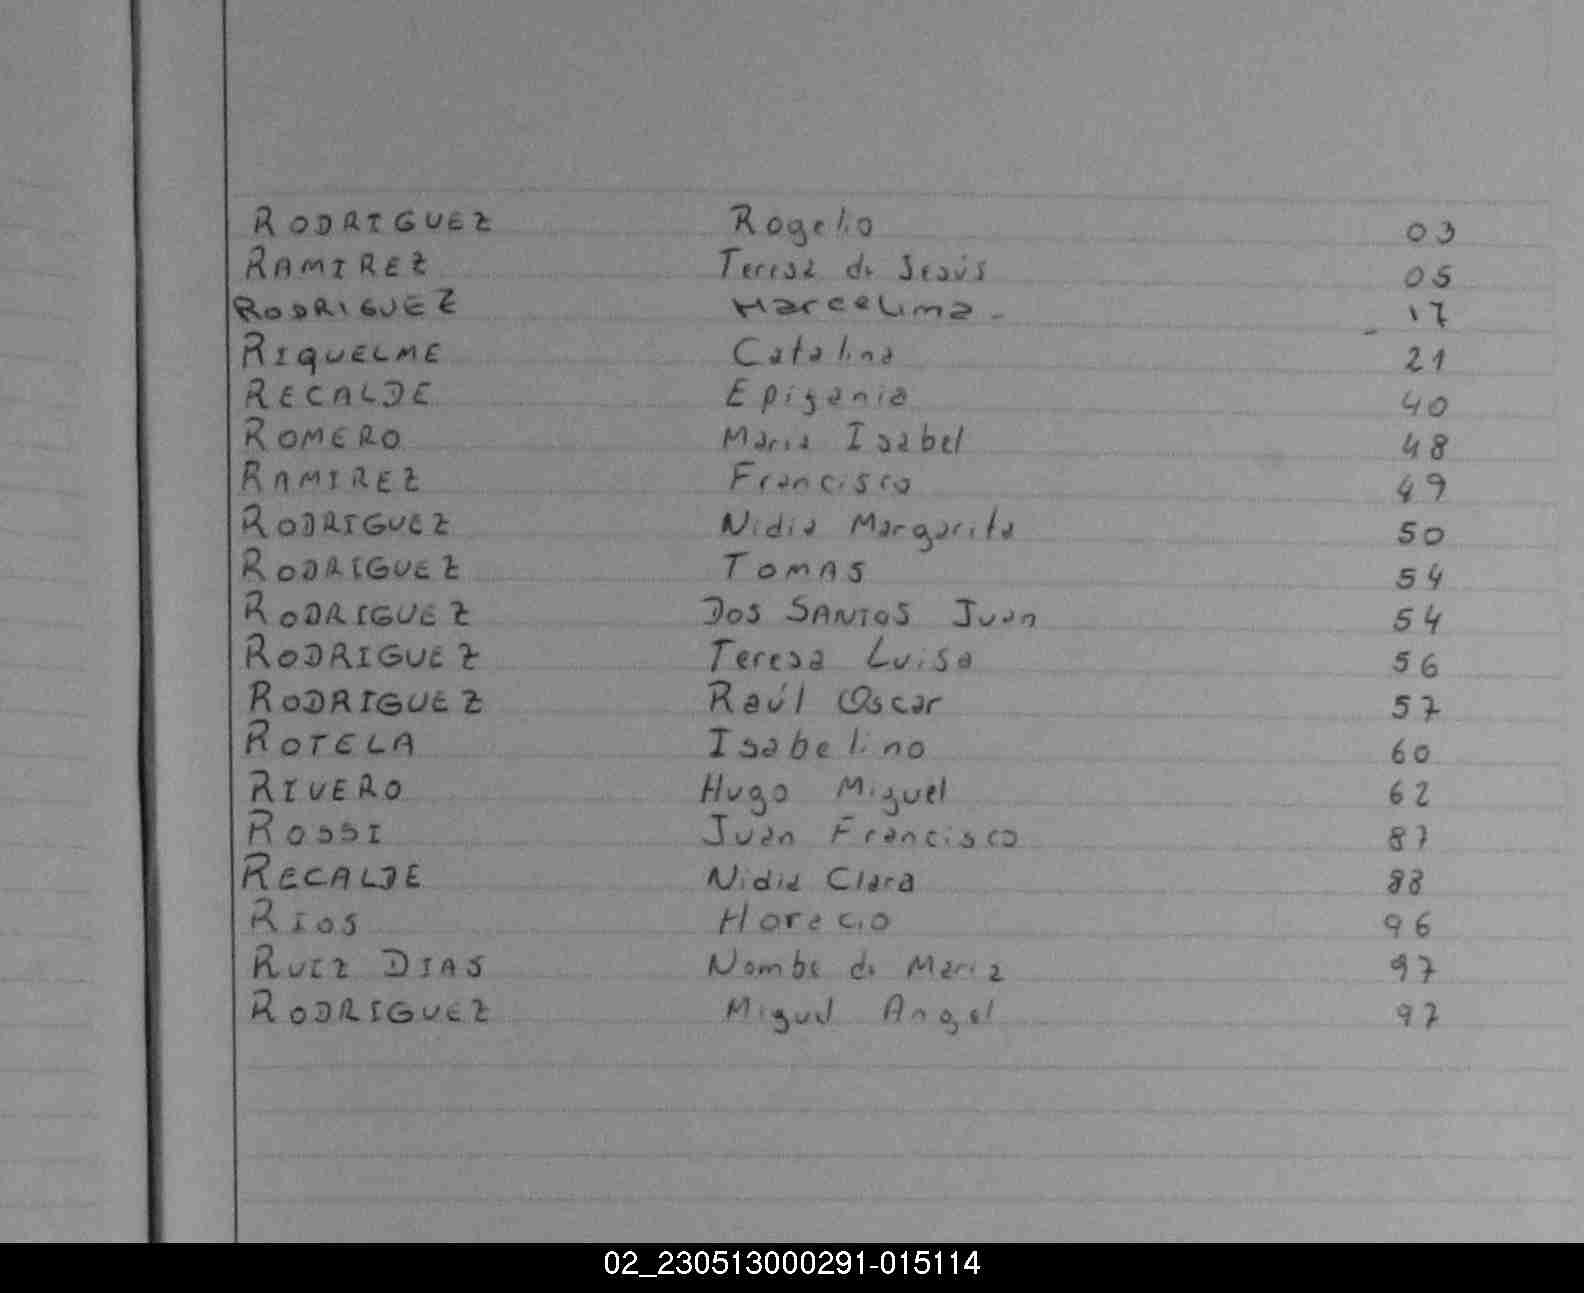 RODRIGUEZ Rogelio 03
RAMIREZ Teresa de Jesús 05
RODRIGUEZ Marcelina - - 17
RIQUELME Catalina 21
RECALDE Epigania 40
ROMERO Maria Isabel 48
RAMIREZ Francisco 49
RODRIGUEZ Nidia Margarita 50
RODRIGUEZ TOMAS 54
RODRIGUEZ DOS SANTOS Juan 54
RODRIGUEZ Teresa Luisa 56
RODRIGUEZ Raúl Oscar 57
ROTELA Isabelino 60
RIVERO Hugo Miguel 62
ROSSI Juan Francisco 87
RECALDE Nidia Clara 88
RIOS Horacio 96
RUIZ DIAS Nombe de Maria 97
RODRIGUEZ Miguel Angel 97
02_230513000291-015114